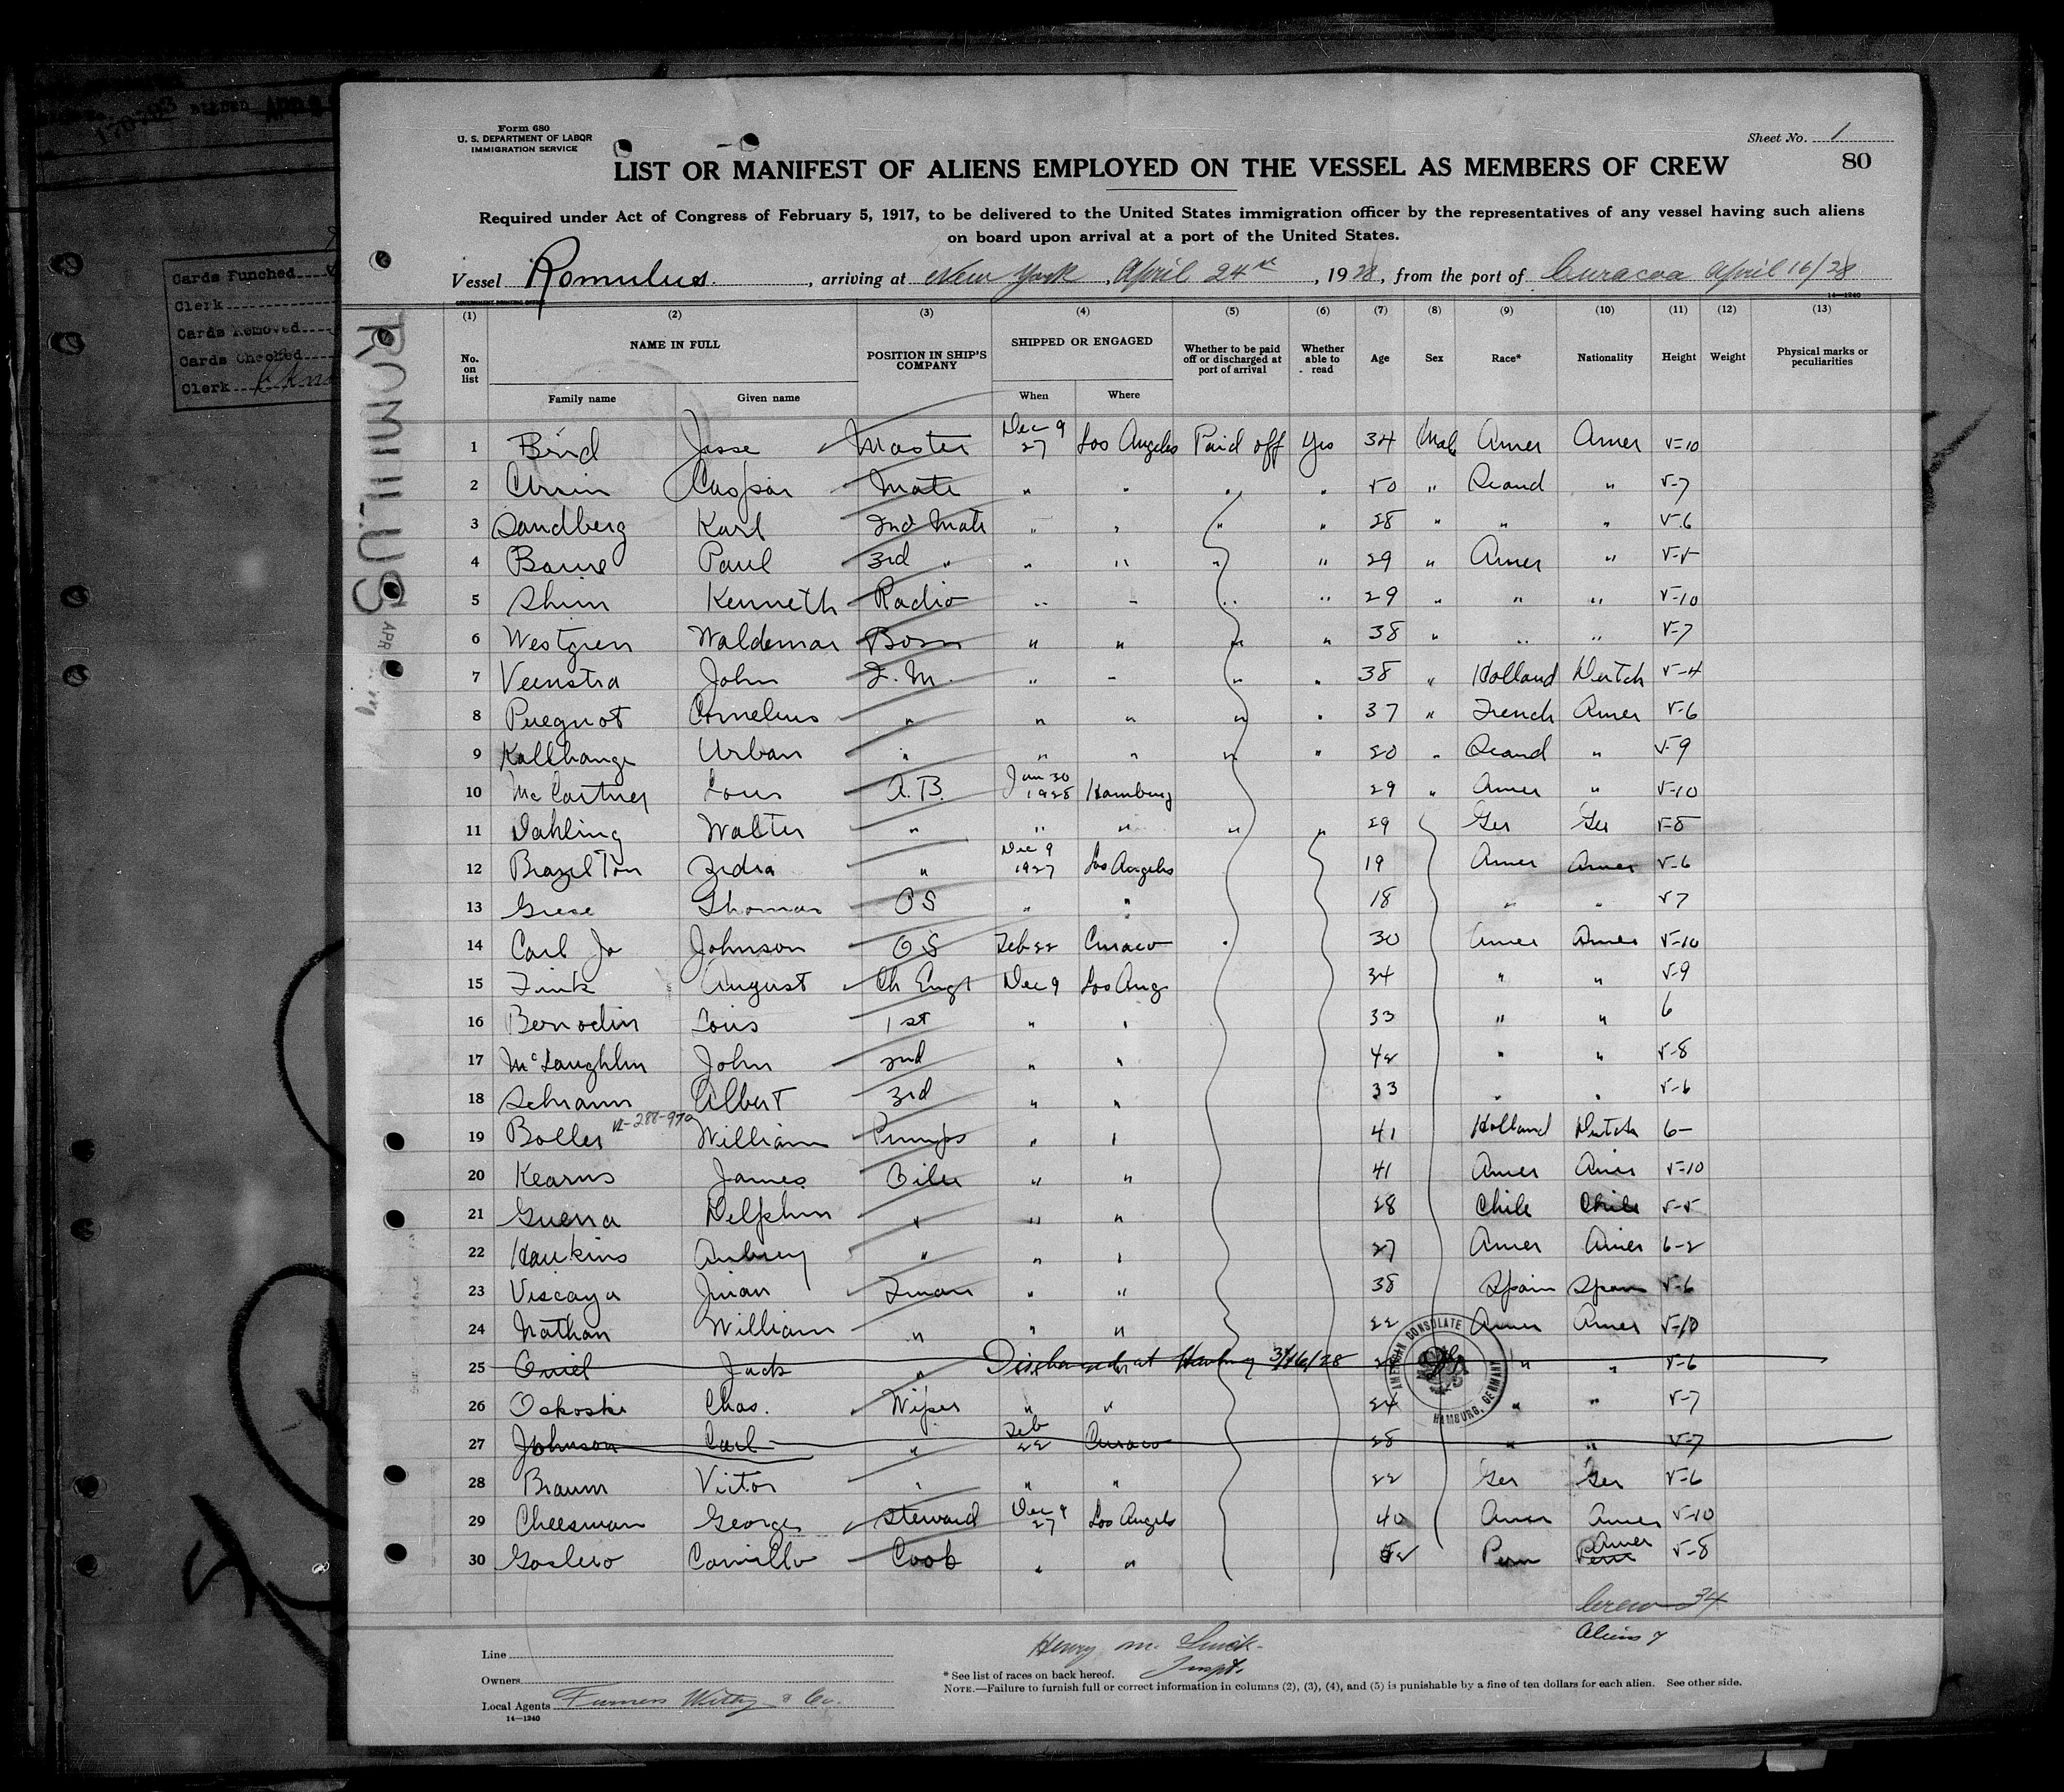 Form 680
U. S. DEPARTMENT OF LABOR
IMMIGRATION SERVICE
Sheet No. 1
80
LIST OR MANIFEST OF ALIENS EMPLOYED ON THE VESSEL AS MEMBERS OF CREW
Required under Act of Congress of February 5, 1917, to be delivered to the United States immigration officer by the representatives of any vessel having such aliens
on board upon arrival at a port of the United States.
Vessel Romulus, arriving at New York, April 24th, 1928, from the port of Curacoa April 16/28
GOVERNMENT PRINTING OFFICE
14—1240
Cards Punched
Clerk
Cards Removed
Cards Checked
Clerk
ROMULUS
APR
(1) (2) (3) (4) (5) (6) (7) (8) (9) (10) (11) (12) (13)
No. on list NAME IN FULL Family name Given name POSITION IN SHIP'S COMPANY SHIPPED OR ENGAGED When Where Whether to be paid off or discharged at port of arrival Whether able to read Age Sex Race* Nationality Height Weight Physical marks or peculiarities
1 Bird Jesse Master Dec 9 27 Los Angeles Paid off Yes 34 Male Amer Amer 5-10
2 Caspar Mate " " " " 50 " Scand " 5-7
3 Sandberg Karl 2nd Mate " " " " 28 " " " 5-6
4 Paul 3rd " " " " " 29 " Amer " 5-5
5 Shinn Kenneth Radio " " " " 29 " " " 5-10
6 Westgren Waldemar Bosn " " " " 38 " " " 5-7
7 Veenstra John Q. M. " " " " 38 " Holland Dutch 5-4
8 Puegnot Cornelius " " " " " 37 " French Amer 5-6
9 Kallhange Urban " " " " " 20 " Scand " 5-9
10 McCartney Louis A. B. Jan 30 1928 Hamburg 29 " Amer " 5-10
11 Dahling Walter " " " " " 29 Ger Ger 5-8
12 Brazelton " Dec 9 1927 Los Angeles 19 Amer Amer 5-6
13 Giese Thomas OS " " 18 " " 5-7
14 Carl Jo Johnson OS Feb 22 Curaco 30 Amer Amer 5-10
15 Fink August Ch Engr Dec 9 Los Ang 34 " " 5-9
16 Bernodin Louis 1st " " 33 " " 6
17 McLaughlin John 2nd " " 42 " " 5-8
18 Schramm Albert 3rd " " 33 " " 5-6
19 Boller William Pumps " " 41 Holland Dutch 6-
20 Kearns James Oiler " " 41 Amer Amer 5-10
21 Guerra Delphin " " " 28 Chile Chile 5-5
22 Hawkins Aubrey " " " 27 Amer Amer 6-2
23 Viscaya Juan Fman " " 38 Spain Span 5-6
24 Nathan William " " " 22 Amer Amer 5-10
25 Jack " Discharged at Hamburg 3/16/28 " " 5-6
26 Oskoski Chas. Wiper " " 24 " " 5-7
27 Johnson Carl " Feb 22 Curaco 28 " " 5-7
28 Braum Victor " " " 22 Ger Ger 5-6
29 Cheesman George Steward Dec 9 27 Los Angels 40 Amer Amer 5-10
30 Camillo Cook " " 52 Peru Peru Amer 5-8
AMERICAN CONSULATE
HAMBURG, GERMANY
Crew 34
Aliens 7
Line
Owners
Local Agents Furness Withy & Co.
14—1240
Henry M.
Inspt.
* See list of races on back hereof.
NOTE.—Failure to furnish full or correct information in columns (2), (3), (4), and (5) is punishable by a fine of ten dollars for each alien. See other side.